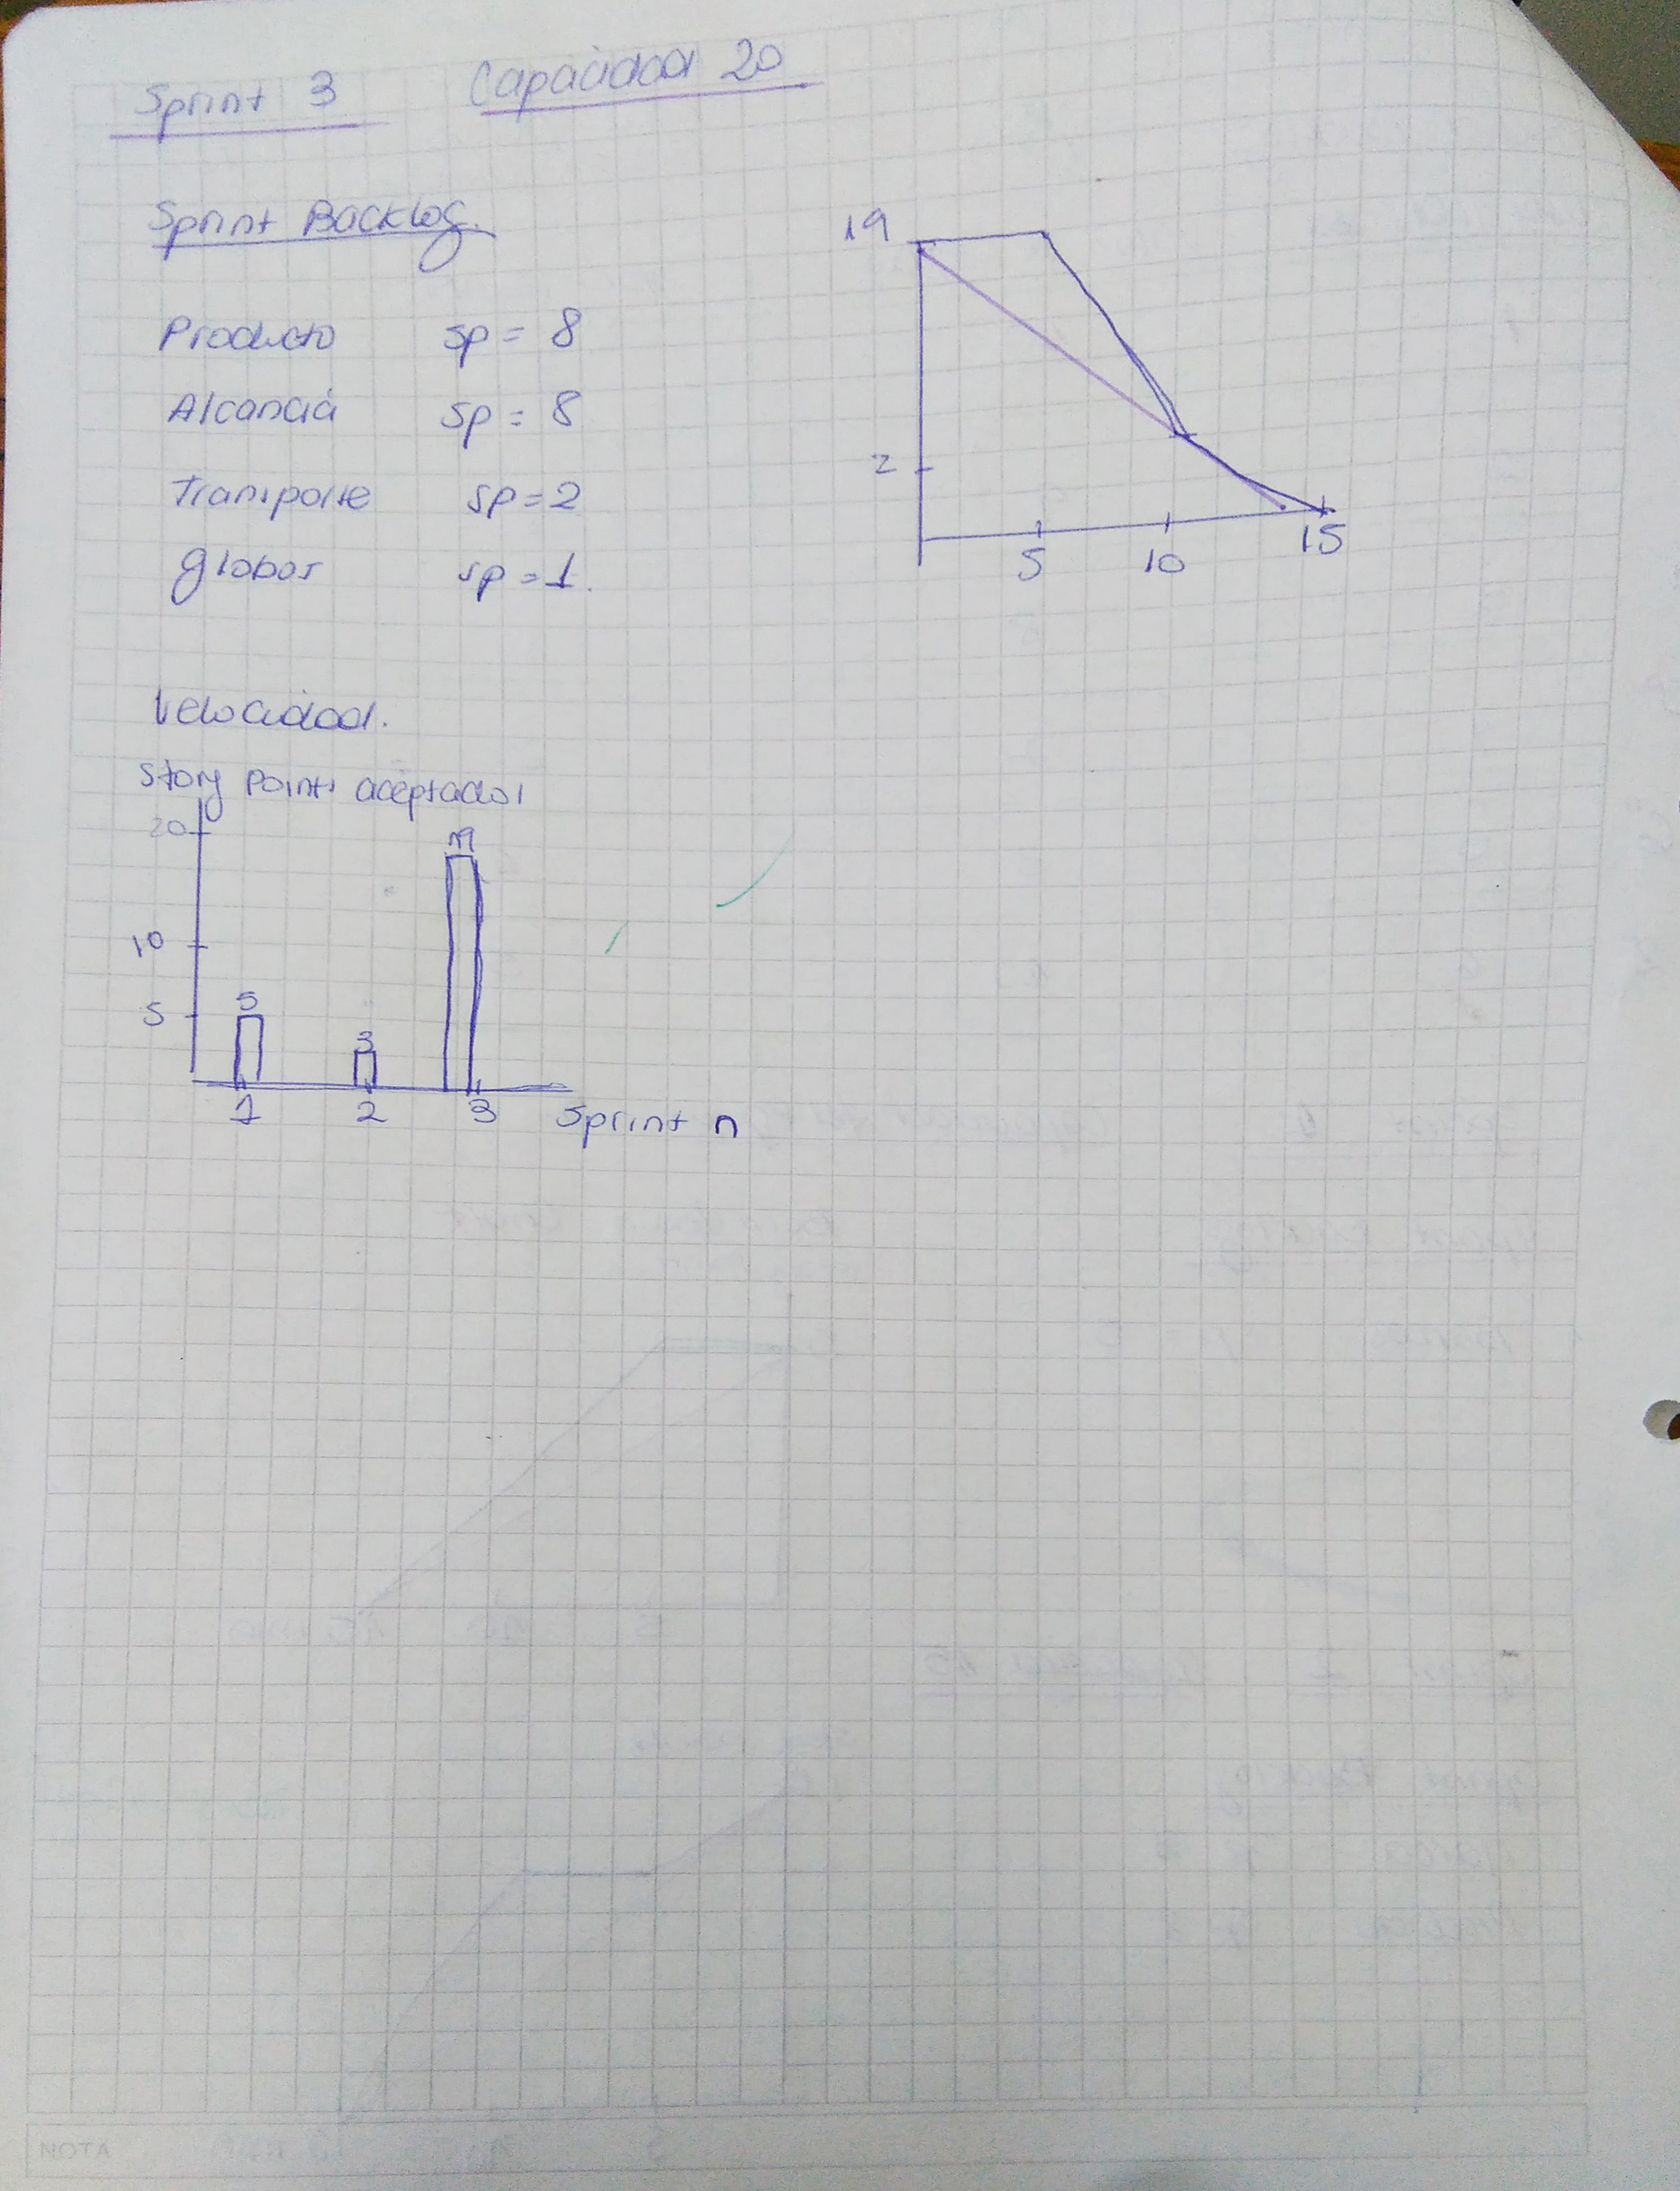 Sprint 3 Capacidad 20
Sprint Backlog.
Producto sp = 8
Alcancía sp = 8
Transporte sp = 2
globos sp = 1.
19
2
5 10 15
Velocidad.
Story Points aceptados
20
10
5
5 3 19
1 2 3 Sprint n
NOTA